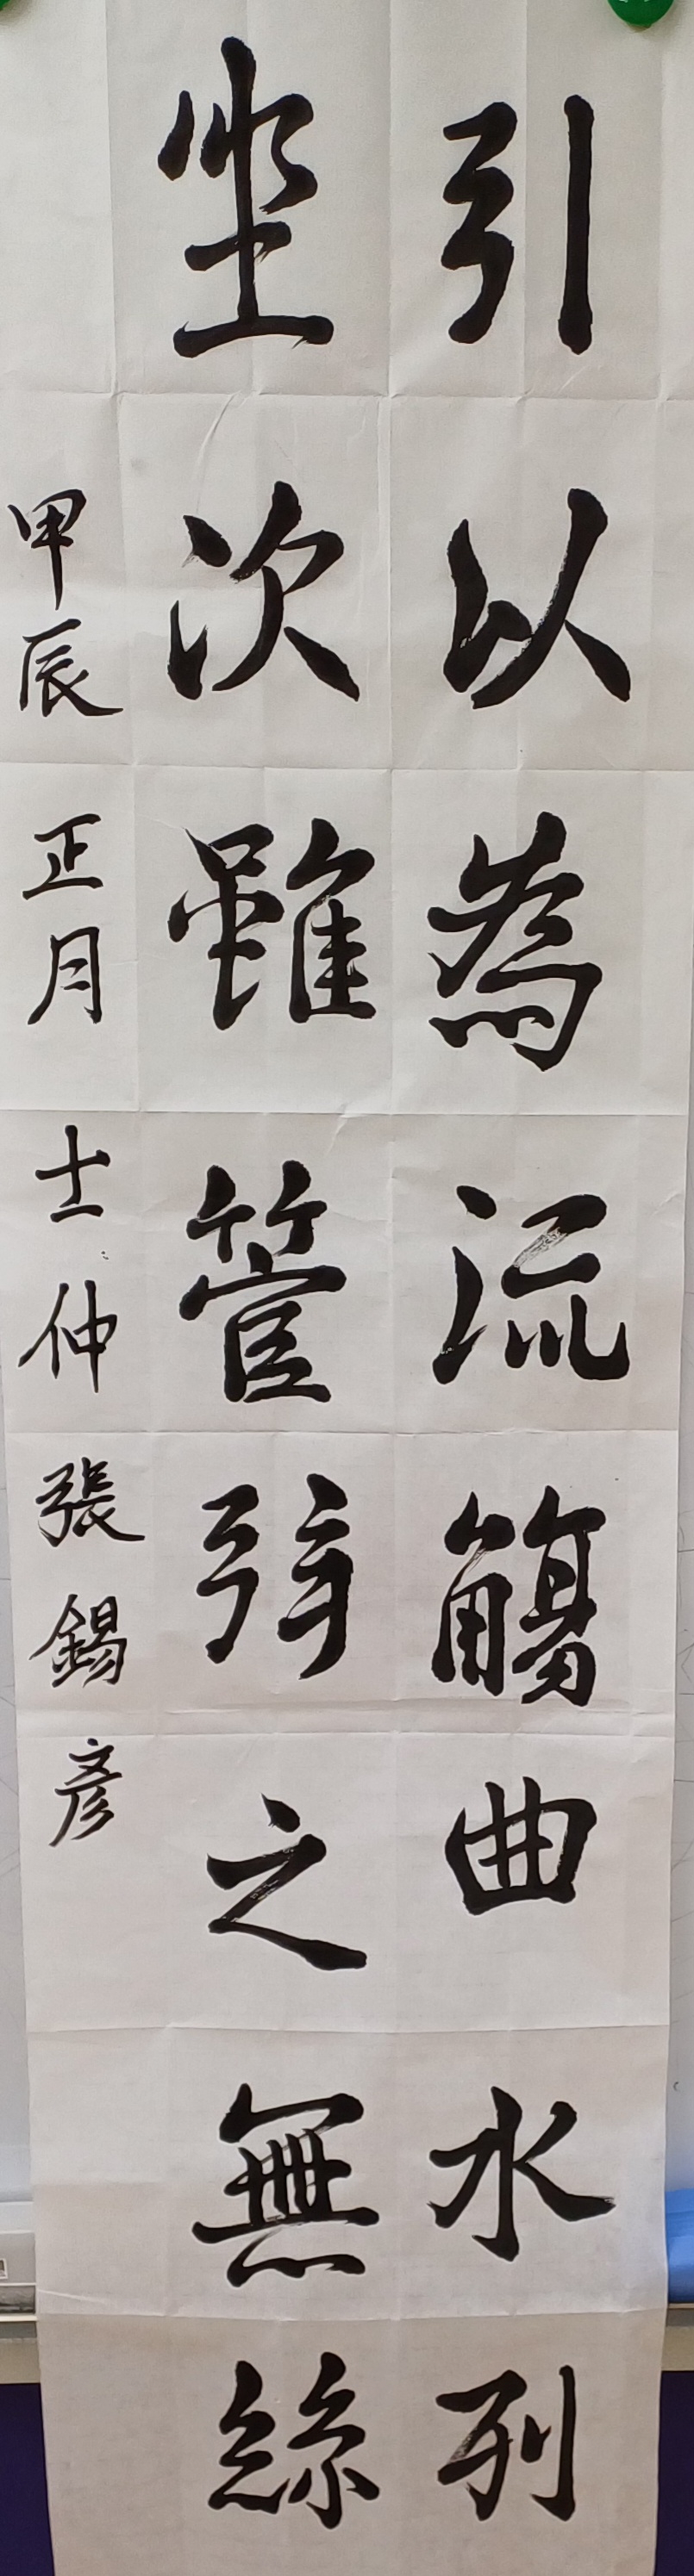 引以為流觴曲水列
坐次雖管弦之無絲
甲辰正月士仲張錫彥